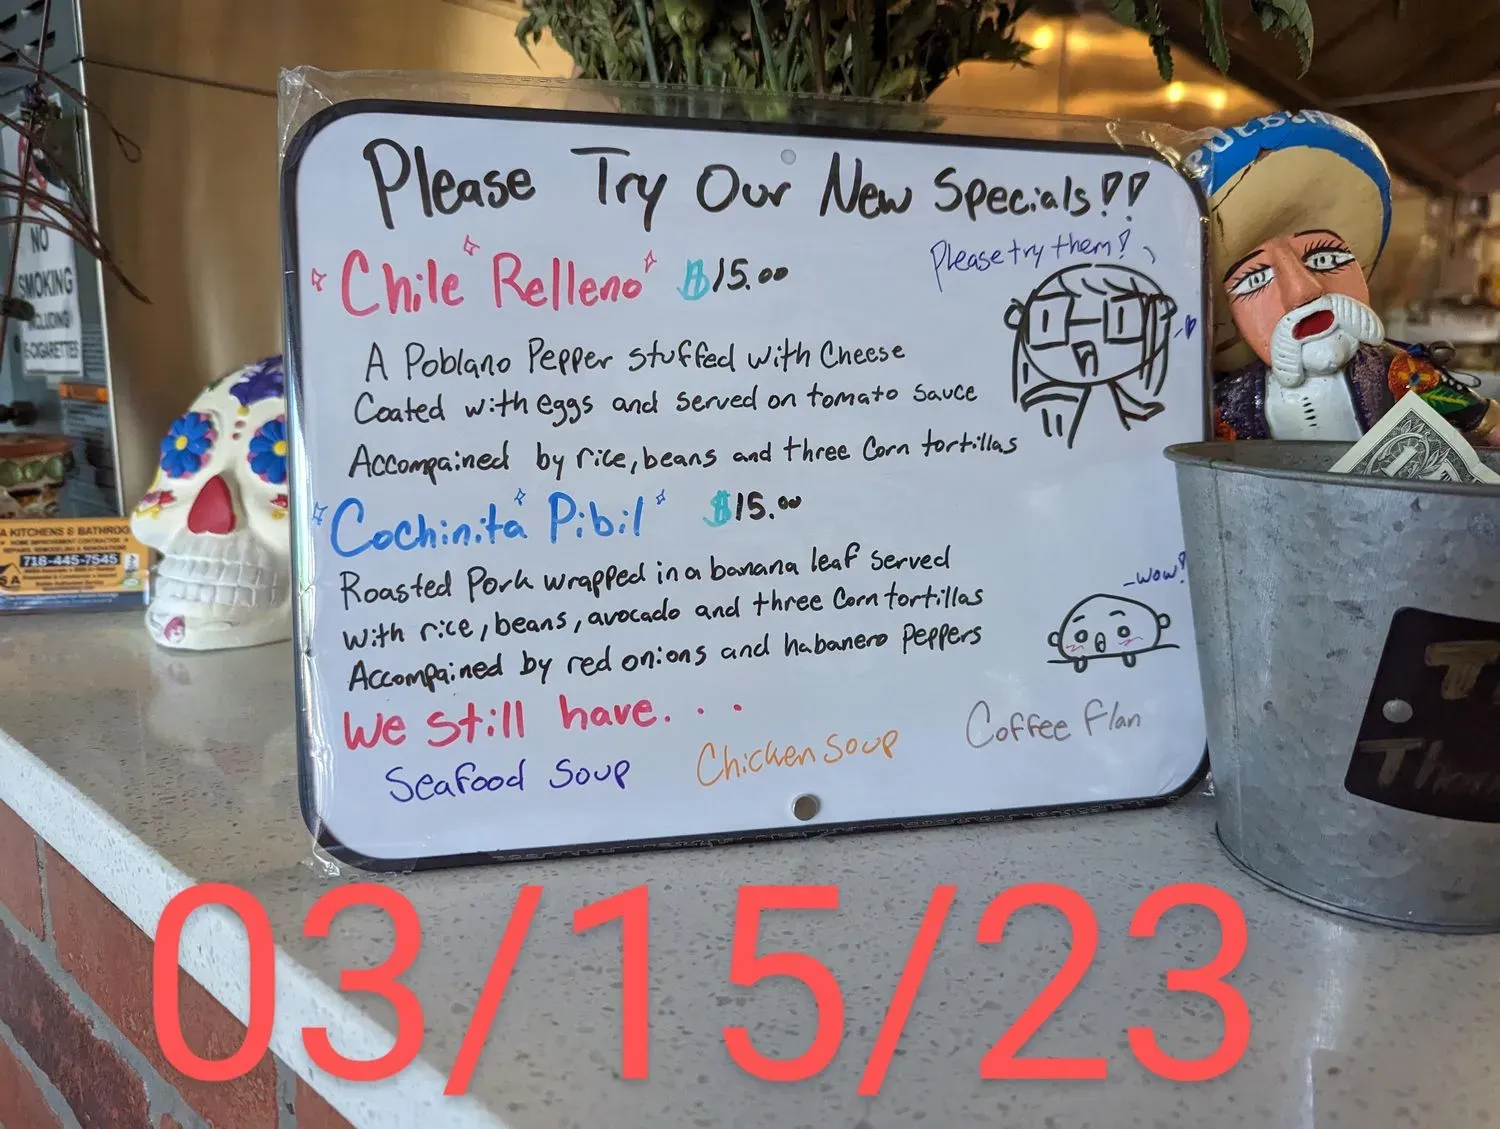 Please Try Our New Specials!!
Please try them!
Chile Relleno $15.00
A Poblano Pepper stuffed with Cheese
Coated with eggs and served on tomato sauce
Accompained by rice, beans and three Corn tortillas
Cochinita Pibil $15.00
Roasted Pork wrapped in a banana leaf served
with rice, beans, avocado and three Corn tortillas
Accompained by red onions and habanero Peppers
-wow!
We still have...
Seafood Soup Chicken Soup Coffee Flan
NO
SMOKING
INCLUDING
E-CIGARETTES
KITCHENS & BATHROO
718-445-7545
PUEBLA
03/15/23